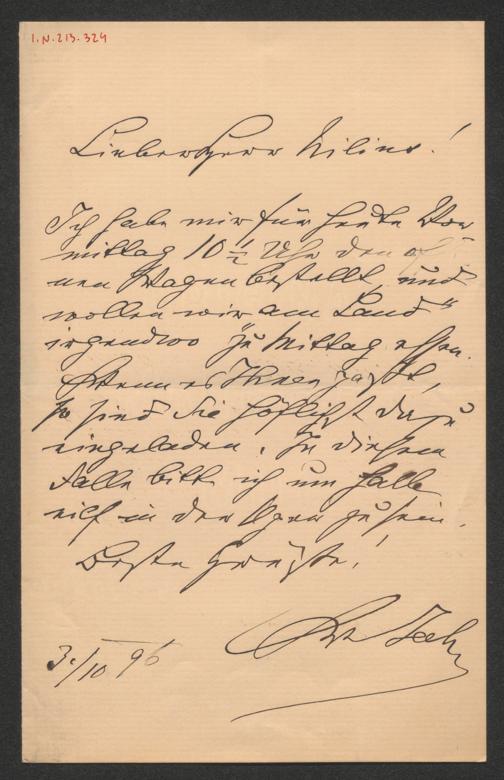 I.N. 213.324
Lieber Herr Milius!
Ich habe mir für heute Vor
mittag 10 ½ Uhr den off
nen Wagen bestellt, und
wollen wir am Land
irgendwo zu Mittag essen.
Wenn es Ihnen paßt,
so sind Sie höflichst dazu
eingeladen. In diesem
Falle bitte ich um halb
elf in der Oper zu sein.
Beste Grüße!
Jahn
3./10 96